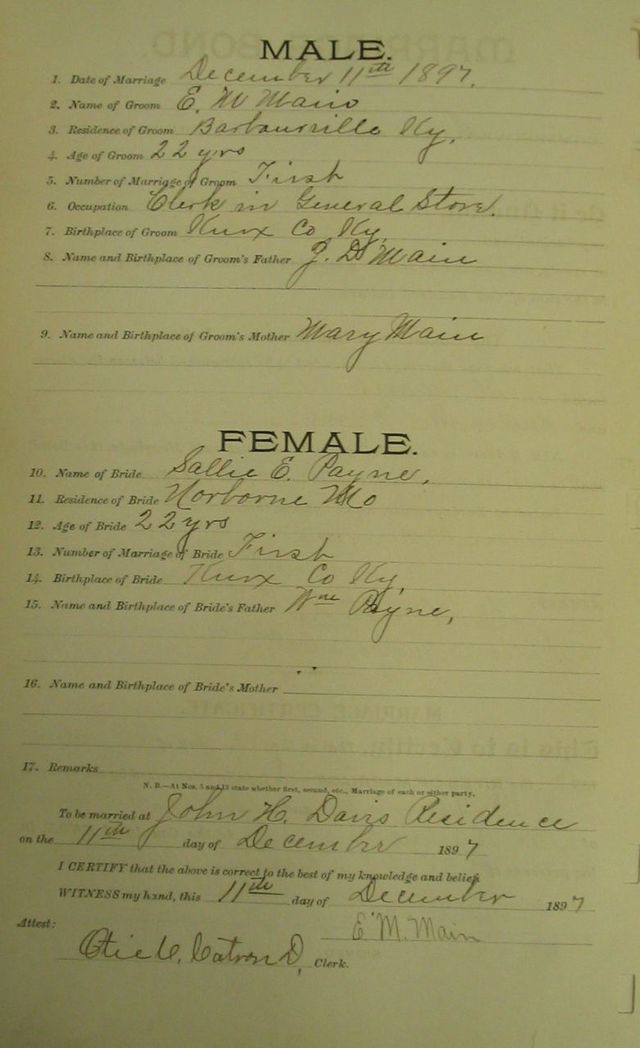 MALE.
1. Date of Marriage December 11th 1897.
2. Name of Groom E. M Main
3. Residence of Groom Barbourville Ky.
4. Age of Groom 22 yrs
5. Number of Marriage of Groom First
6. Occupation Clerk in General Store.
7. Birthplace of Groom Knox Co Ky.
8. Name and Birthplace of Groom's Father J. D. Main
9. Name and Birthplace of Groom's Mother Mary Main
FEMALE.
10. Name of Bride Sallie E. Payne,
11. Residence of Bride Norborne Mo
12. Age of Bride 22 yrs
13. Number of Marriage of Bride First
14. Birthplace of Bride Knox Co Ky,
15. Name and Birthplace of Bride's Father Wm Payne,
16. Name and Birthplace of Bride's Mother
17. Remarks
N. B.—At Nos. 5 and 13 state whether first, second, etc., Marriage of each or either party.
To be married at John H. Davis Residence
on the 11th day of December 1897
I CERTIFY that the above is correct to the best of my knowledge and belief.
WITNESS my hand, this 11th day of December 1897
E. M. Main
Attest:
Catron D, Clerk.